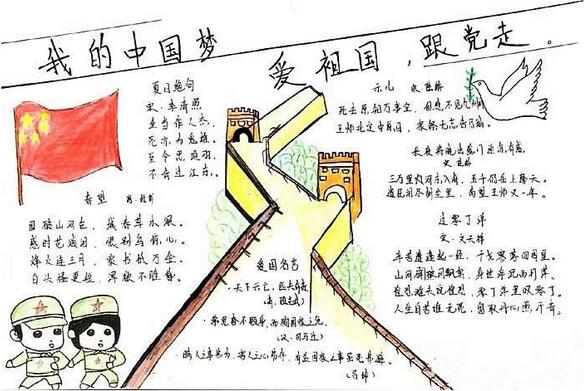 我的中国梦 爱祖国，跟党走。
夏日绝句
宋·李清照
生当作人杰，
死亦为鬼雄。
至今思项羽，
不肯过江东。
春望 唐·杜甫
国破山河在，城春草木深。
感时花溅泪，恨别鸟惊心。
烽火连三月，家书抵万金。
白头搔更短，浑欲不胜簪。
爱国名言
·天下兴亡，匹夫有责
(清·顾炎武)
·常思奋不顾身，而殉国家之急
(汉·司马迁)
·瞒人之事弗为，害人之心弗存，有益国家之事虽死弗避。
(吕坤)
示儿 宋 陆游
死去原知万事空，但悲不见九州同。
王师北定中原日，家祭无忘告乃翁。
秋夜将晓出篱门迎凉有感
宋 陆游
三万里河东入海，五千仞岳上摩天。
遗民泪尽胡尘里，南望王师又一年。
过零丁洋
宋·文天祥
辛苦遭逢起一经，干戈寥落四周星。
山河破碎风飘絮，身世浮沉雨打萍。
惶恐滩头说惶恐，零丁洋里叹零丁。
人生自古谁无死，留取丹心照汗青。